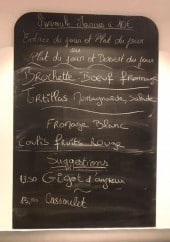 Formule Maxine à 10€
Entrée du jour et Plat du jour
ou
Plat du jour et Dessert du jour
Brochette Boeuf fromage
Tortillas Montagnarde, Salade
Fromage Blanc
Coulis fruits Rouge
Suggestions
13,50 Gigot d'agneau
15,00 Cassoulet